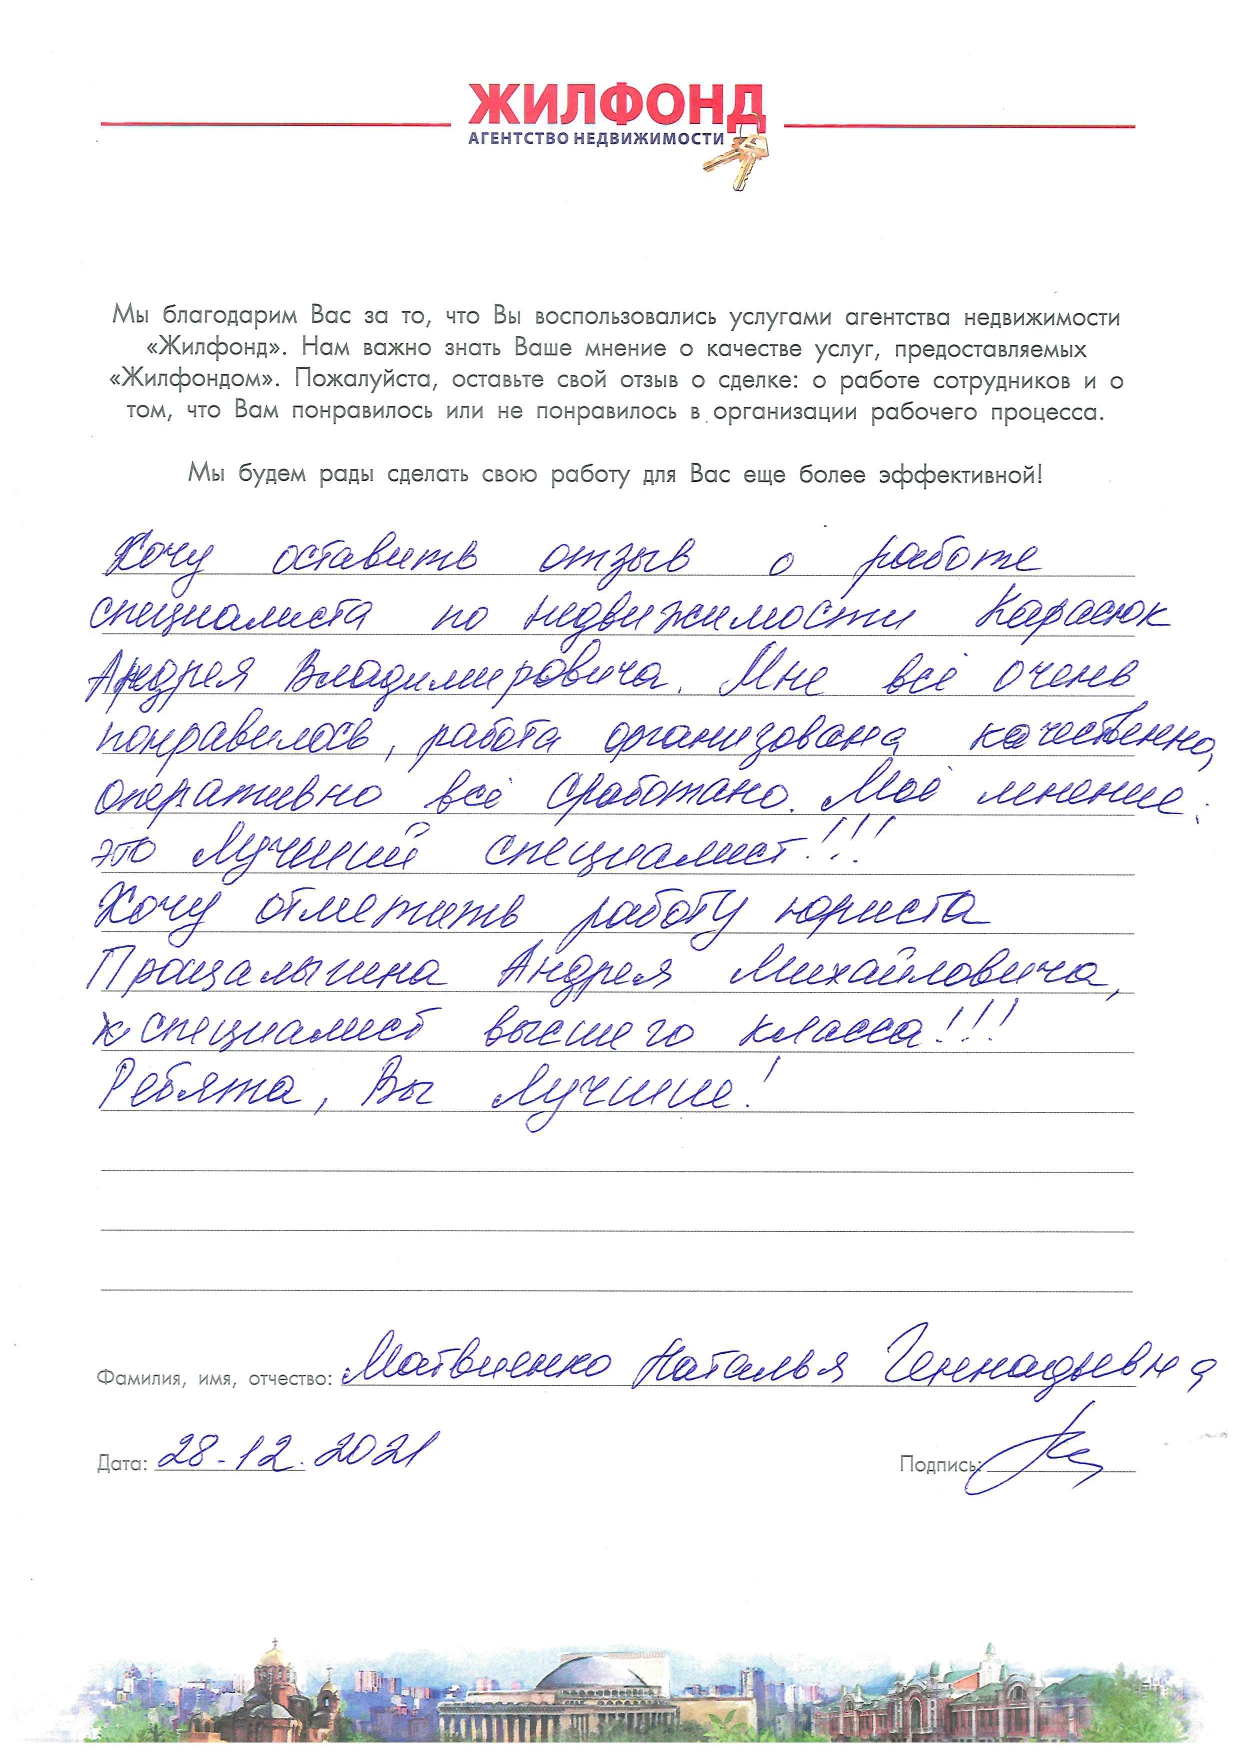 ЖИЛФОНД
АГЕНТСТВО НЕДВИЖИМОСТИ
Мы благодарим Вас за то, что Вы воспользовались услугами агентства недвижимости
«Жилфонд». Нам важно знать Ваше мнение о качестве услуг, предоставляемых
«Жилфондом». Пожалуйста, оставьте свой отзыв о сделке: о работе сотрудников и о
том, что Вам понравилось или не понравилось в организации рабочего процесса.
Мы будем рады сделать свою работу для Вас еще более эффективной!
Хочу оставить отзыв о работе
специалиста по недвижимости Карасюк
Андрея Владимировича. Мне всё очень
понравилось, работа организована качественно,
оперативно всё сработано. Моё мнение:
это Лучший специалист!!!
Хочу отметить работу юриста
Прощалыгина Андрея Михайловича,
специалист высшего класса!!!
Ребята, Вы Лучшие!
Фамилия, имя, отчество: Матвиенко Наталья Геннадьевна
Дата: 28.12.2021 Подпись: